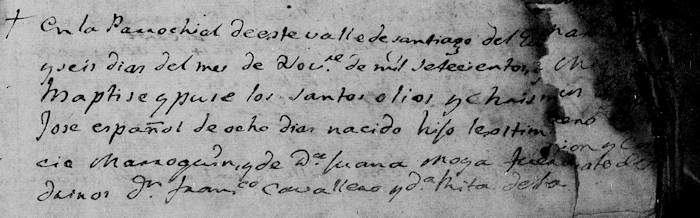 En la Parrochial de este valle de santiago del
y seis dias del mes de Nov.re de mil setecientos,
Baptise y puse los santos olios, y Chrisma
José español de ocho dias nacido hijo lexitim
cio Marroquin, y de D.a Juana Moya fue
drinos D.n Fran.co Cavallero y d.a Rita de la